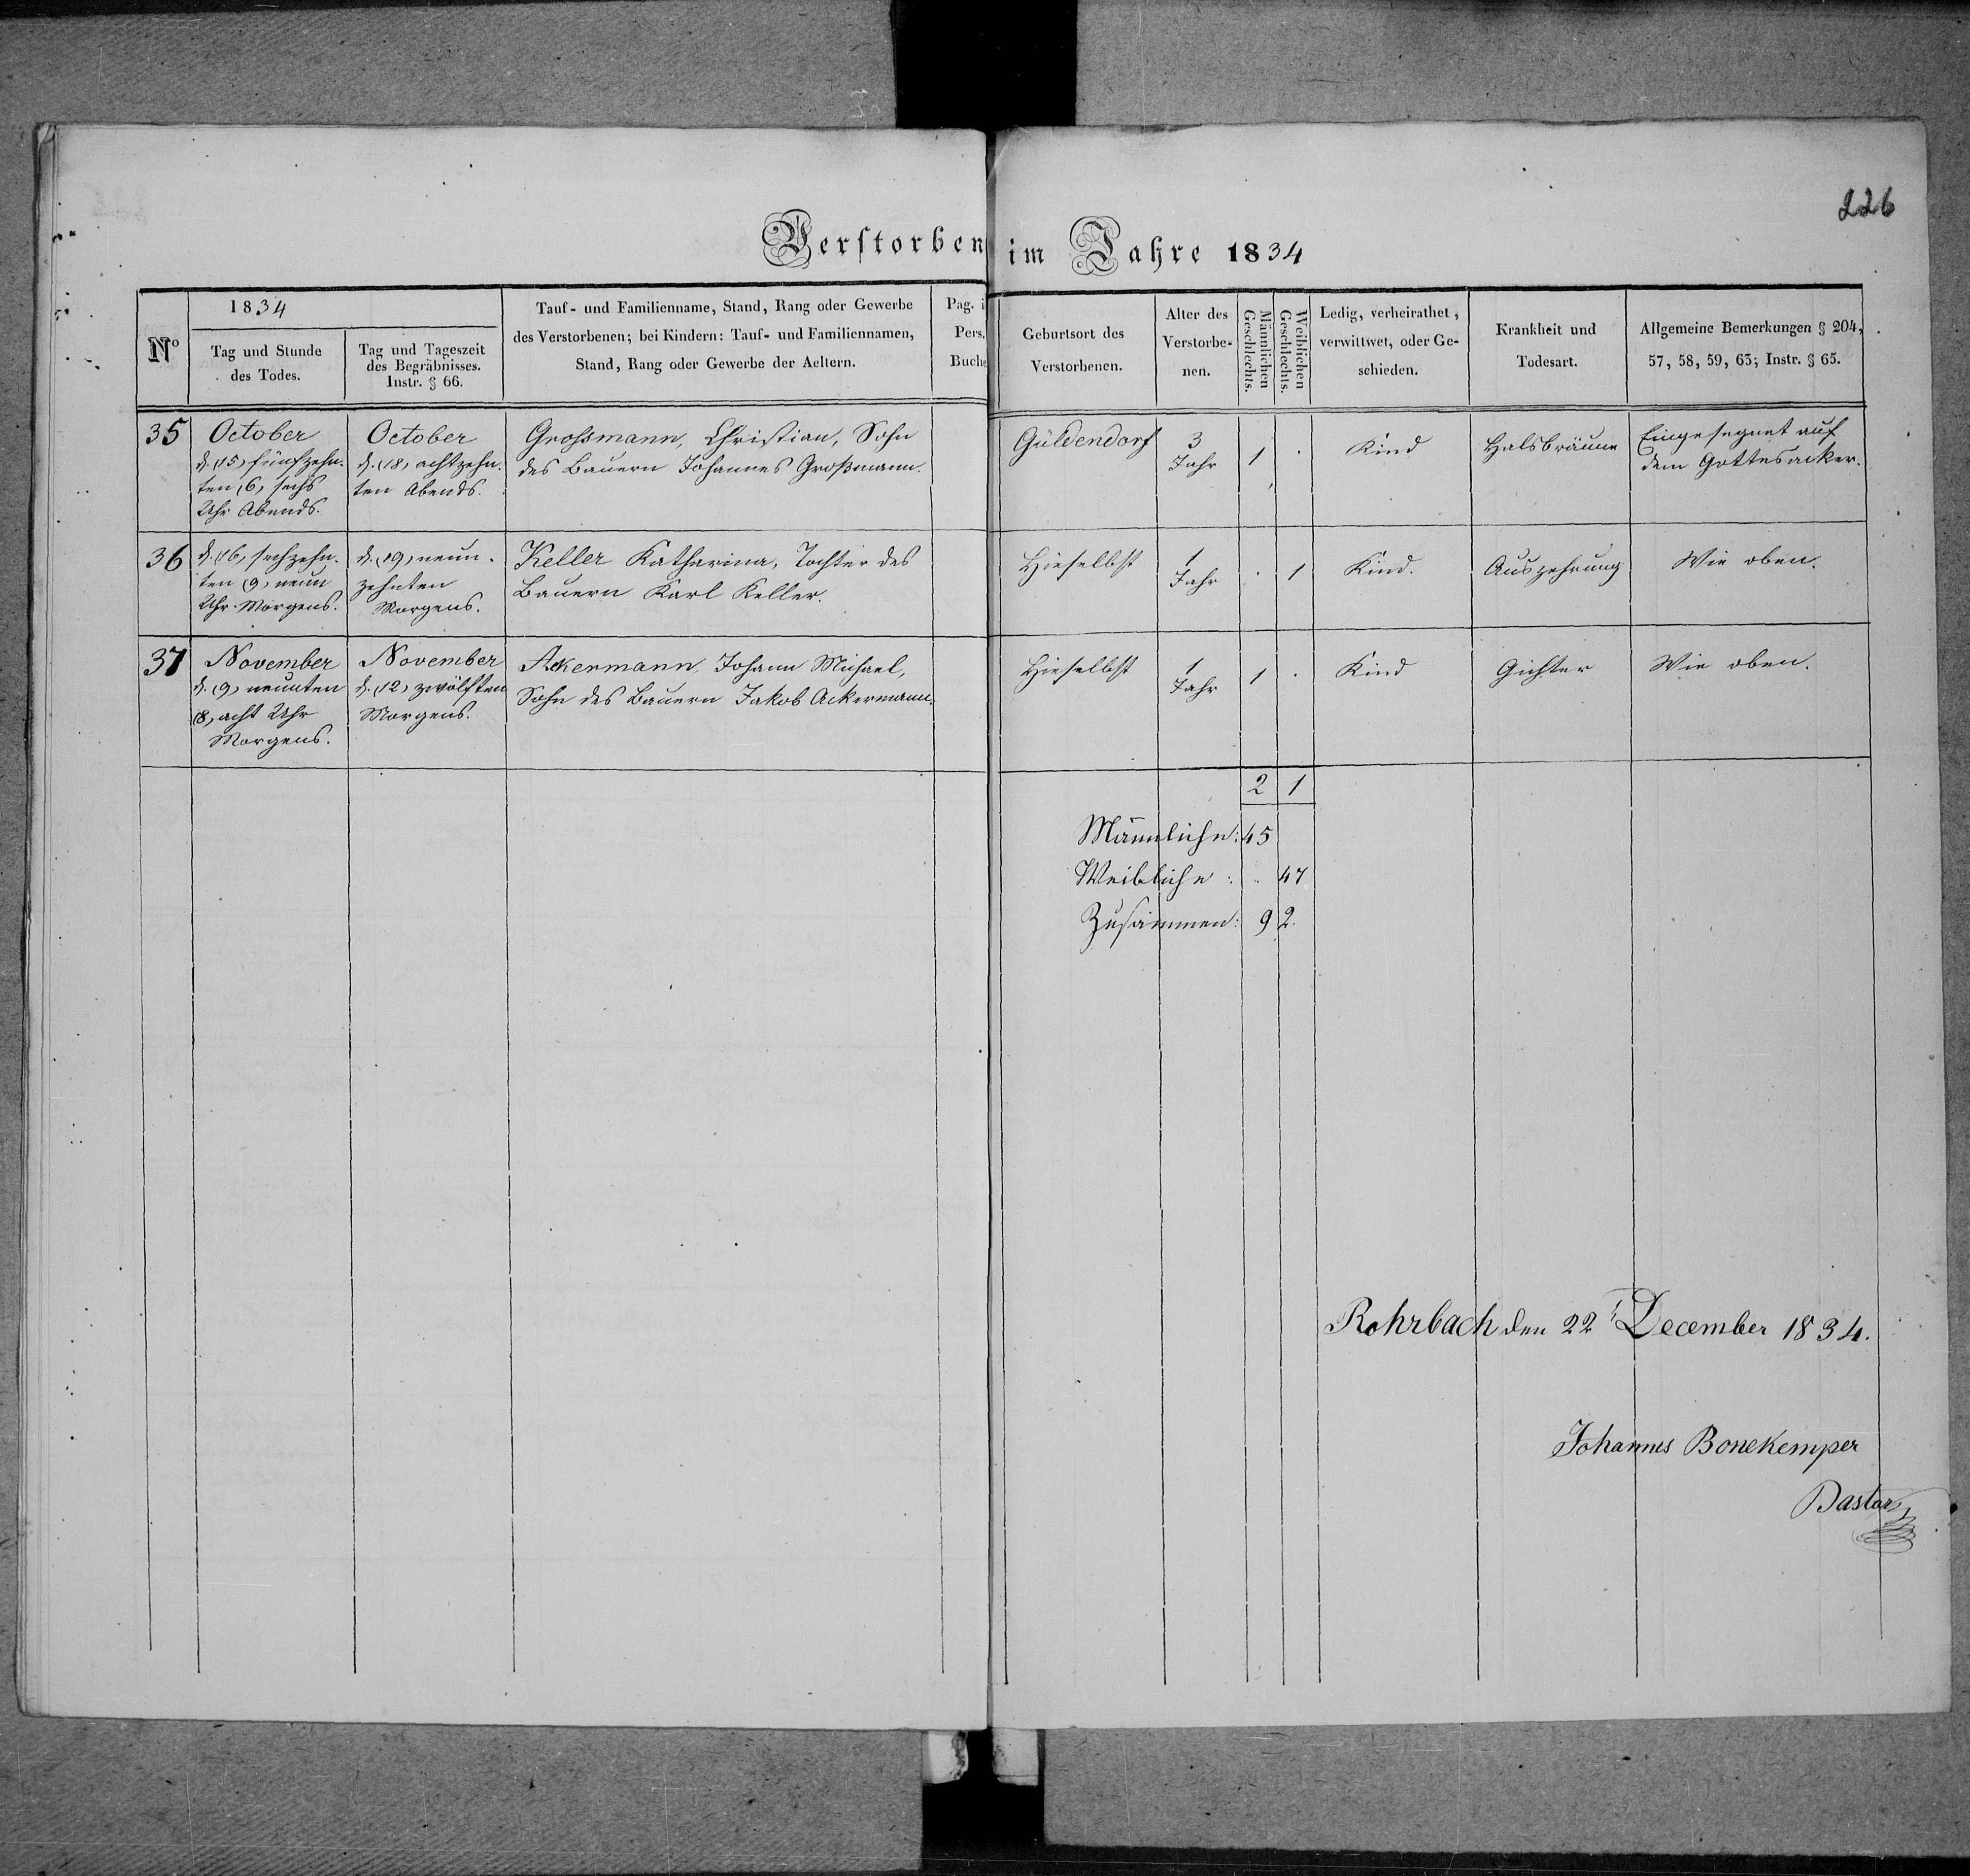 226
Verstorben im Jahre 1834
No
1834
Tag und Stunde
des Todes.
Tag und Tageszeit
des Begräbnisses.
Instr. § 66.
Tauf- und Familienname, Stand, Rang oder Gewerbe
des Verstorbenen; bei Kindern: Tauf- und Familiennamen,
Stand, Rang oder Gewerbe der Aeltern.
Pag. i
Pers.
Buche
Geburtsort des
Verstorbenen.
Alter des
Verstorbe-
nen.
Männlichen
Geschlechts.
Weiblichen
Geschlechts.
Ledig, verheirathet,
verwittwet, oder Ge-
schieden.
Krankheit und
Todesart.
Allgemeine Bemerkungen § 204,
57, 58, 59, 63; Instr. § 65.
35
October
d. (15) fünfzehn-
ten (6) sechs
Uhr Abends.
October
d. (18) achtzehn-
ten Abends.
Grossmann, Christian, Sohn
des Bauern Johannes Großmann.
Güldendorf
3
Jahr
1
.
Kind
Halsbräune
Eingesegnet auf
dem Gottesacker.
36
d. (16) sechzehn-
ten (9) neun
Uhr Morgens.
d. (19) neun-
zehnten
Morgens.
Keller Katharina, Tochter des
Bauern Karl Keller.
Hieselbst
1
Jahr
.
1
Kind.
Auszehrung
Wie oben.
37
November
d. (9) neunten
(8) acht Uhr
Morgens.
November
d. (12) zwölften
Morgens.
Ackermann, Johann Michael,
Sohn des Bauern Jakob Ackermann.
Hieselbst
1
Jahr
1
.
Kind
Gichter
Wie oben.
2 1
Männliche: 45
Weibliche: " 47
Zusammen: 92.
Rohrbach den 22t December 1834.
Johannes Bonekemper
Pastor